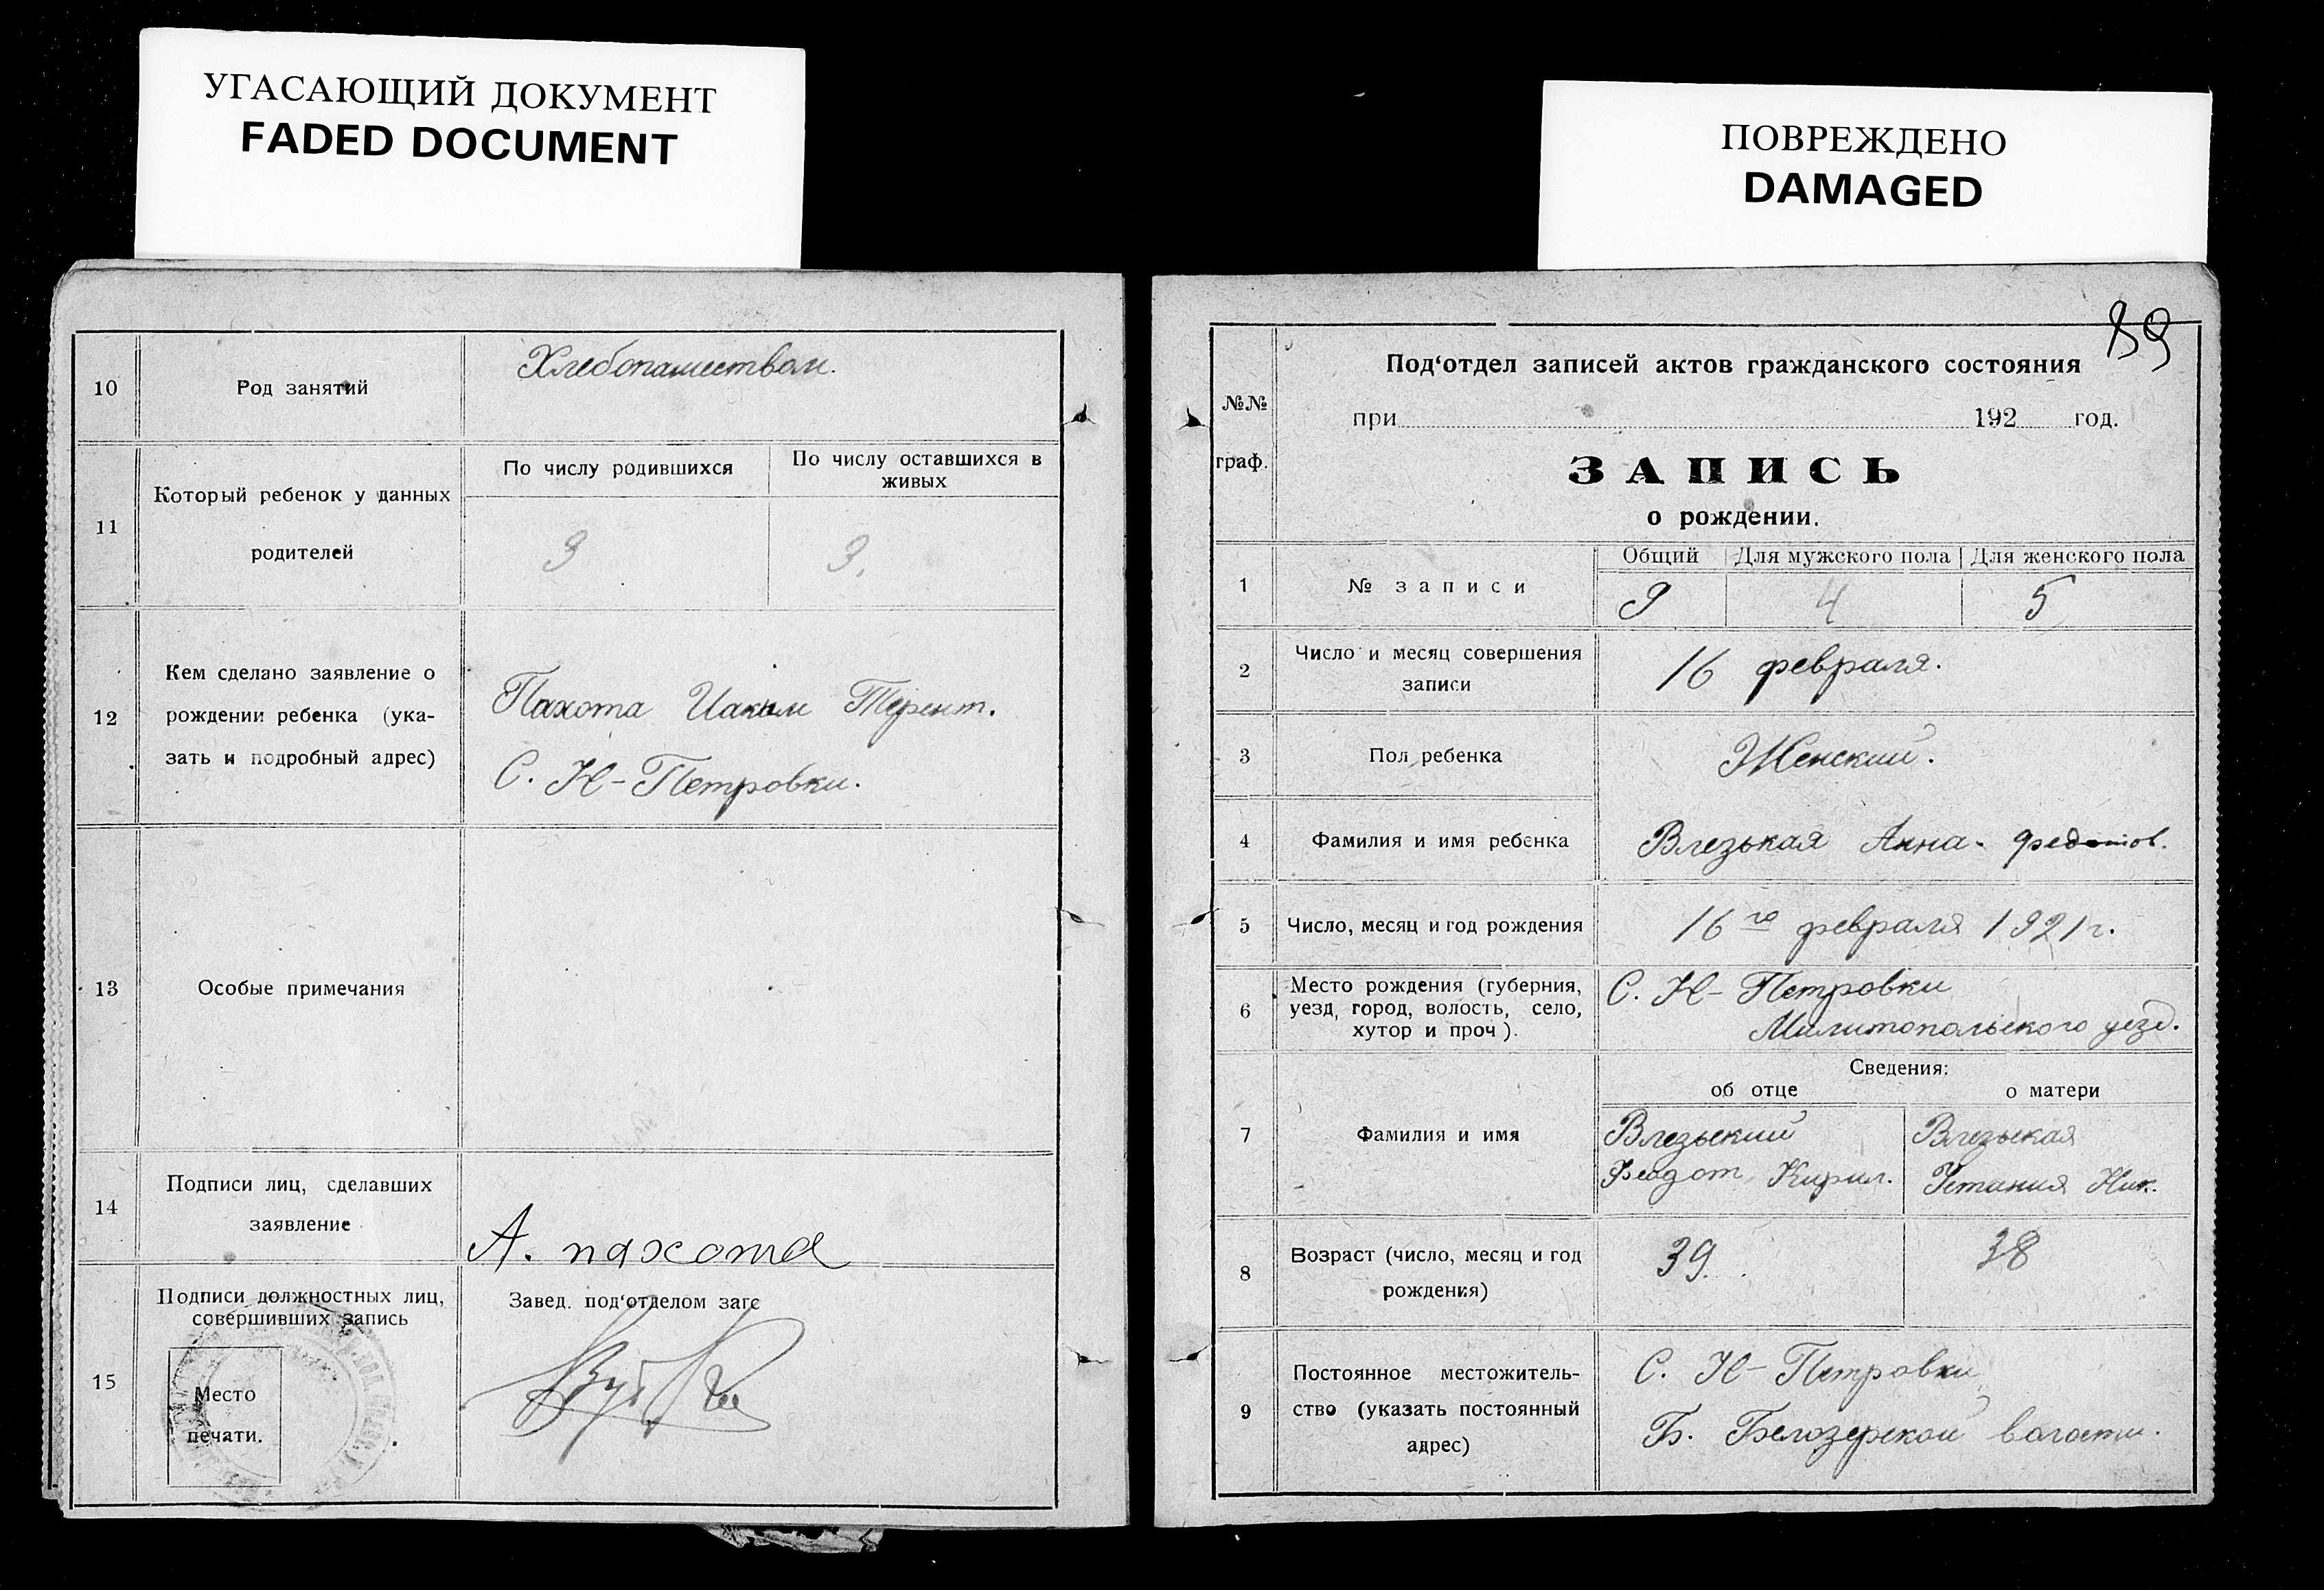 УГАСАЮЩИЙ ДОКУМЕНТ
FADED DOCUMENT
10
Род занятий
Хлебопашеством.
11
Который ребенок у данных
родителей
По числу родившихся
По числу оставшихся в
живых
3
3.
12
Кем сделано заявление о
рождении ребенка (ука-
зать и подробный адрес)
Пахота Иаким Терент.
С. Н-Петровки.
13
Особые примечания
14
Подписи лиц, сделавших
заявление
А. пахота
15
Подписи должностных лиц,
совершивших запись
Место
печати.
Завед. под‘отделом загс
ПОВРЕЖДЕНО
DAMAGED
89
№№
граф.
Под‘отдел записей актов гражданского состояния
при 192 год.
ЗАПИСЬ
о рождении.
1
№ записи
Общий Для мужского пола Для женского пола
9 4 5
2
Число и месяц совершения
записи
16 февраля.
3
Пол ребенка
Женский.
4
Фамилия и имя ребенка
Влезькая Анна. Федотов.
5
Число, месяц и год рождения
16го февраля 1921 г.
6
Место рождения (губерния,
уезд, город, волость, село,
хутор и проч).
С. Н-Петровки
Милитопольского уезд.
Сведения:
об отце
о матери
7
Фамилия и имя
Влезьский
Федот Кирил.
Влезькая
Ник.
8
Возраст (число, месяц и год
рождения)
39.
38
9
Постоянное местожитель-
ство (указать постоянный
адрес)
С. Н-Петровки
Б. Белозерской волости.